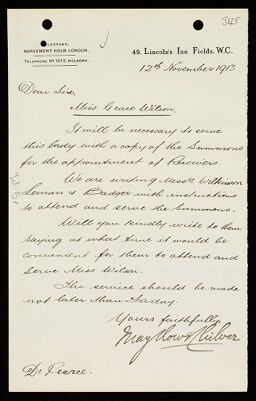 348
Telegrams:
Agreement Holb London.
Telephone No 1072, Holborn.
49, Lincoln's Inn Fields, W.C.
12th November 1913.
Dear Sirs,
Miss Grace Wilson.
It will be necessary to serve
this lady with a copy of the Summons
for the appointment of Receivers.
We are writing Messrs Wilkinson
& Badger with instructions
to attend and serve the Summons.
Will you kindly write to them
saying at what time it would be
convenient for them to attend and
Serve Miss Wilson.
The service should be made
not later than
Yours faithfully,
Dr Pearce.